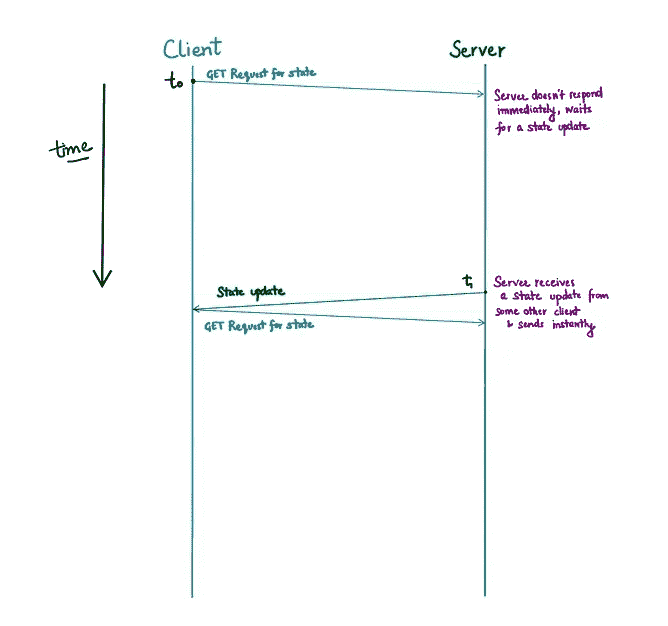 Client
Server
t₀
GET Request for state
Server doesn't respond
immediately, waits
for a state update
time
t₁
Server receives
a state update from
some other client
& sends instantly
State update
GET Request for state